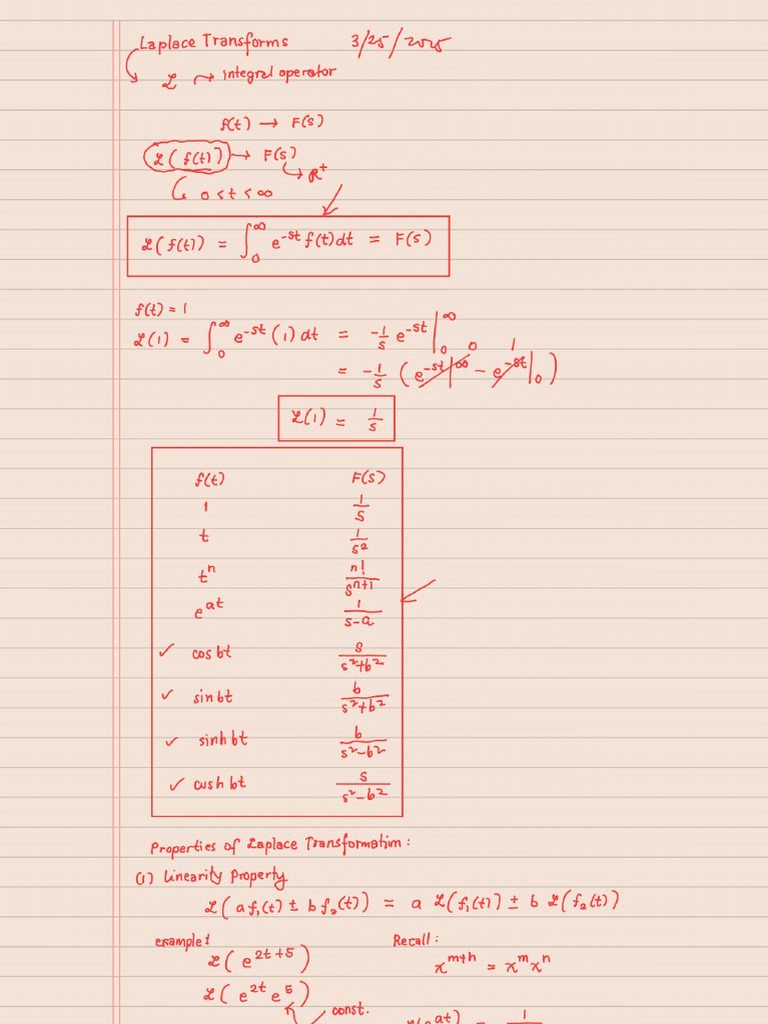 Laplace Transforms 3/25/2025
ℒ → integral operator
f(t) → F(s)
ℒ(f(t)) → F(s)
→ R⁺
0 < t < ∞
ℒ(f(t)) = ∫₀^∞ e^{-st} f(t)dt = F(s)
f(t) = 1
ℒ(1) = ∫₀^∞ e^{-st} (1) dt = -1/s e^{-st} |₀^∞
0 1
= -1/s (e^{-st}|^∞ - e^{-st}|₀)
ℒ(1) = 1/s
f(t) F(s)
1 1/s
t 1/s²
tⁿ n!/s^{n+1}
e^{at} 1/(s-a)
✓ cos bt s/(s²+b²)
✓ sin bt b/(s²+b²)
✓ sinh bt b/(s²-b²)
✓ cosh bt s/(s²-b²)
Properties of Laplace Transformation:
(1) Linearity Property
ℒ(a f₁(t) ± b f₂(t)) = a ℒ(f₁(t)) ± b ℒ(f₂(t))
example: Recall:
ℒ(e^{2t+5}) x^{m+n} = x^m x^n
ℒ(e^{2t} e^5)
const.